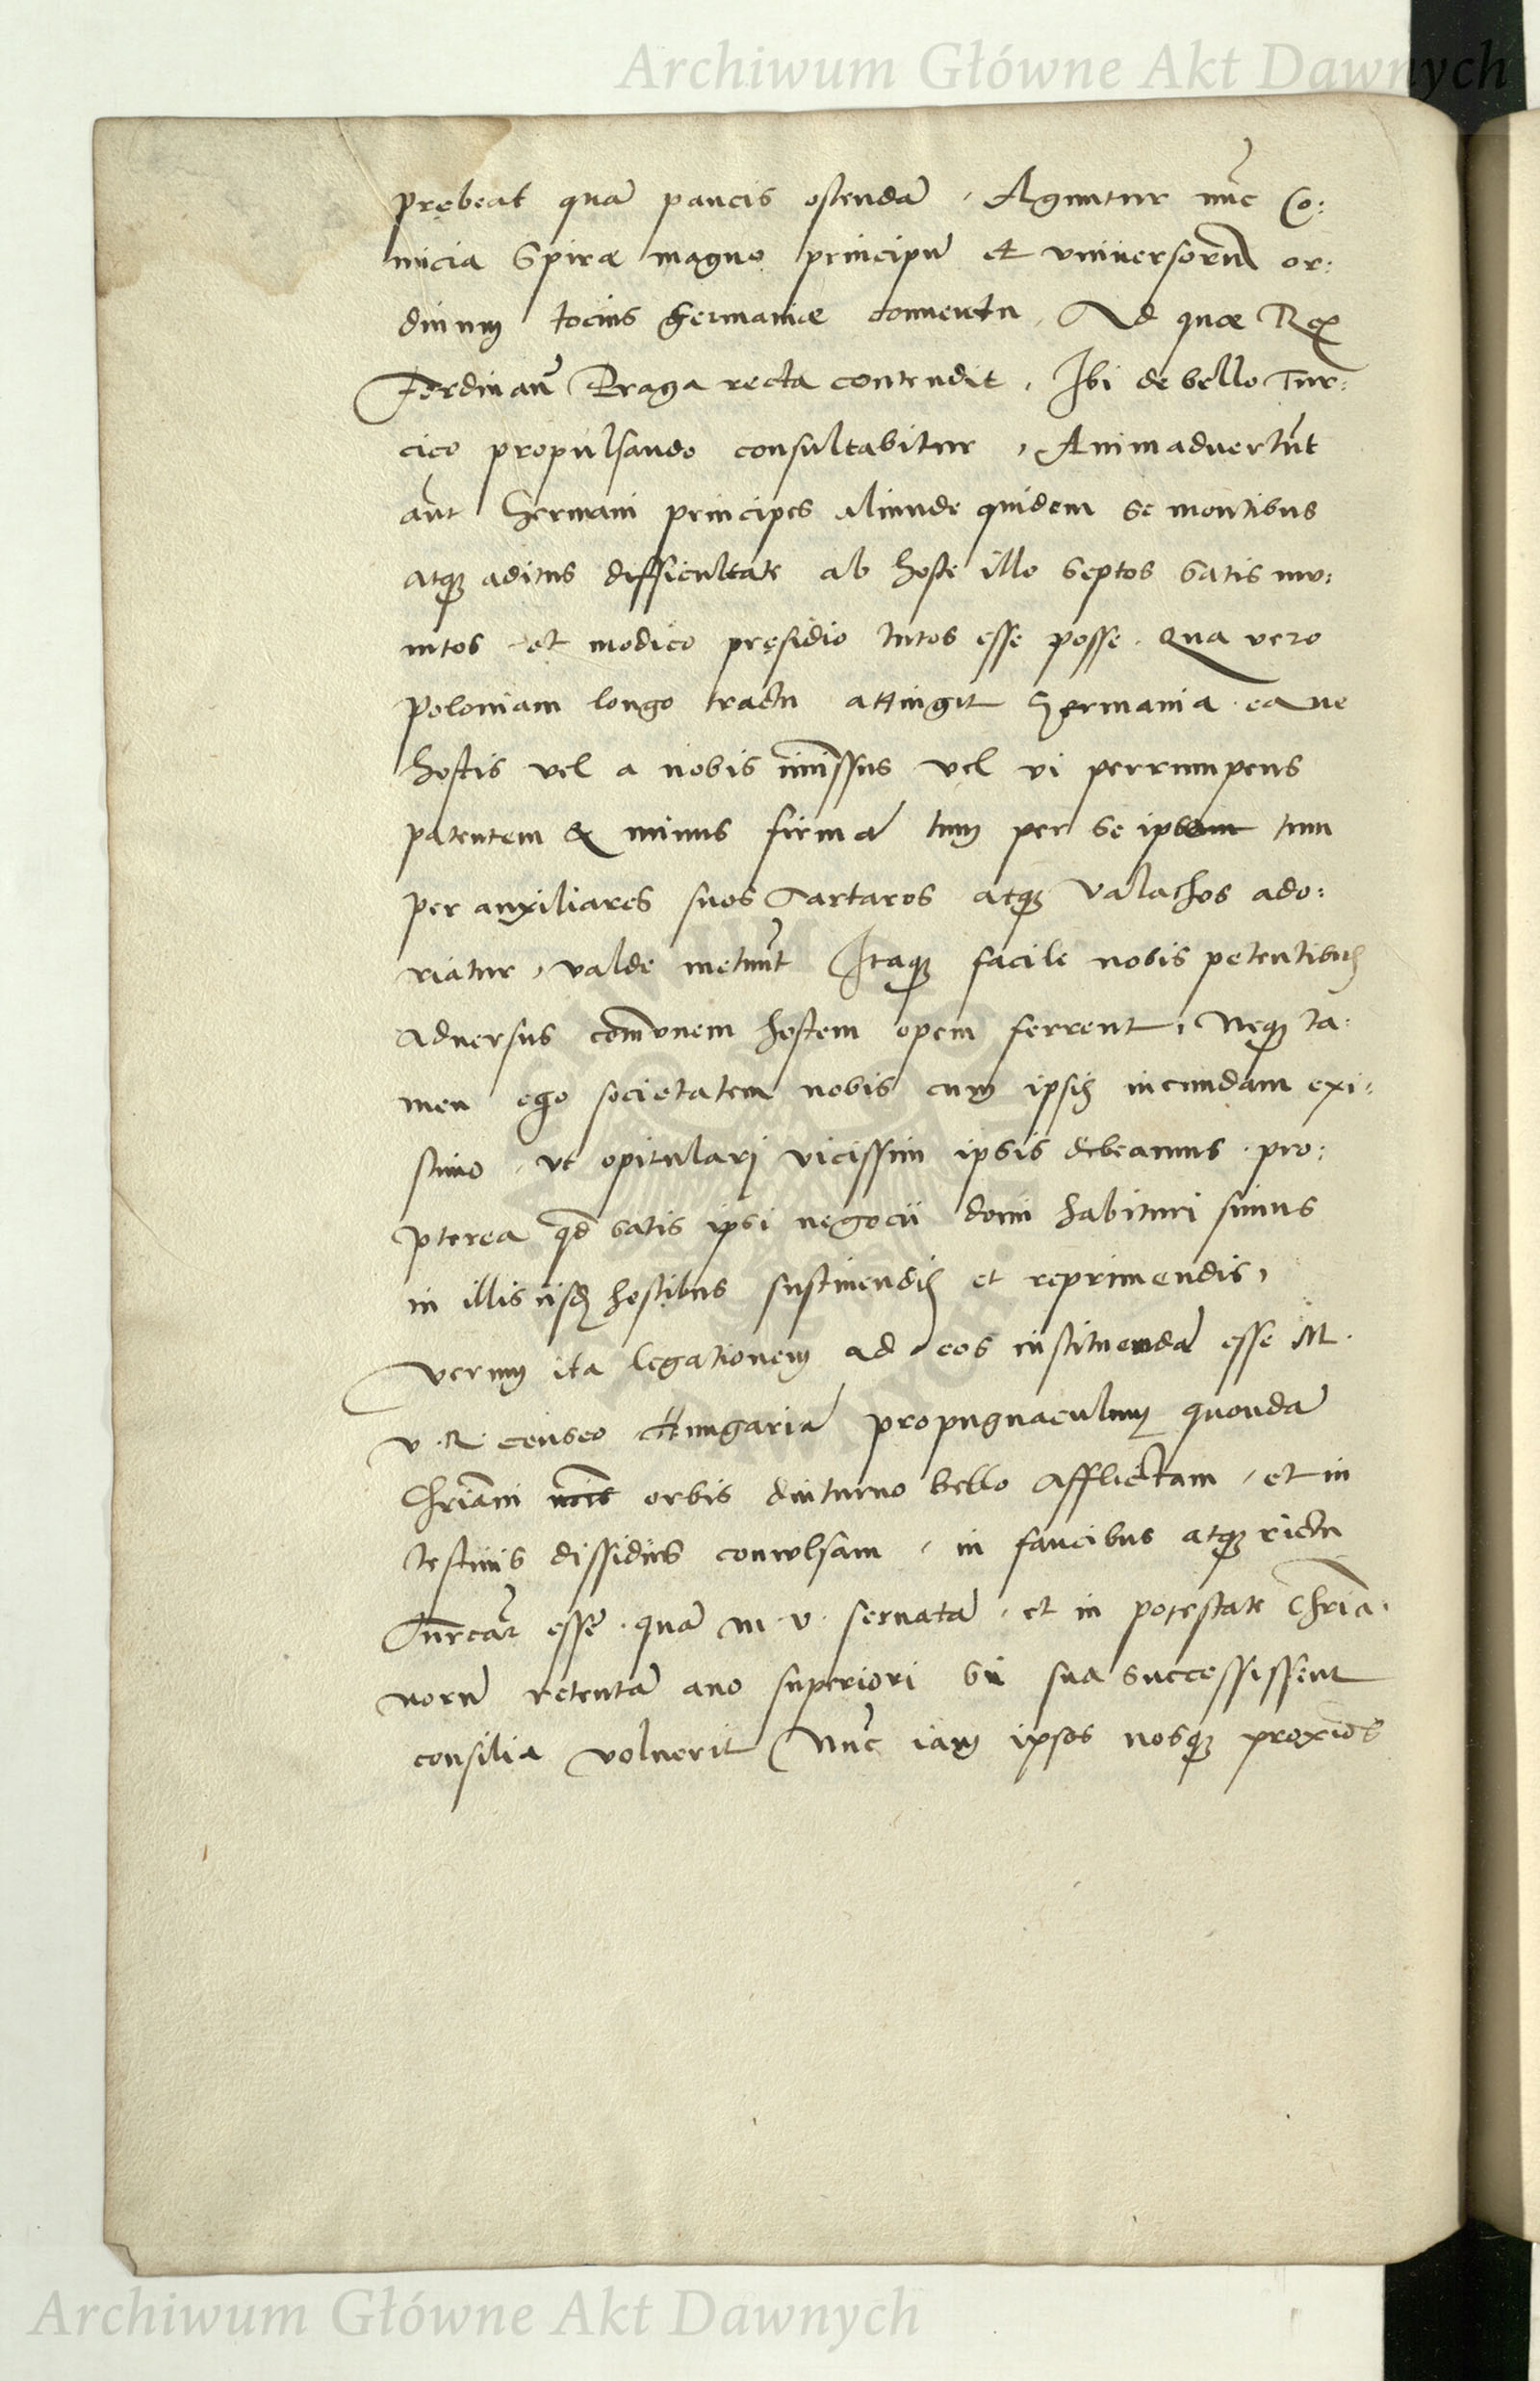 Archiwum Główne Akt Dawnych
prębeat quā paucis ostendā, Aguntur nūc Co:
micia Spiræ magno principū et vniuersorūm or:
dinum tocius Germaniæ conuentu, Ad quæ Rex
Ferdinanꝰ Praga recta contendit, Ibi de bello Tur:
cico propulsando consultabitur, Animaduertūt
aūt Germani principes aliunde quidem se montibus
atq3 aditus difficultate ab hoste illo septos satis mu:
nitos et modico pręsidio tutos esse posse. Qua vero
Poloniam longo tractu attingit Germania ea ne
hostis vel a nobis īmissus vel vi perrumpens
patentem & minus firmā tum per se ipsum tum
per auxiliares suos Tartaros atq3 Valachos ado:
riatur, valde metuūt Itaq3 facile nobis petentibus
aduersus com̄vnem hostem opem ferrent, Neq3 ta:
men ego societatem nobis cum ipsis ineundam exi:
stimo, vt opitulari vicissim ipsis debeamus. pro:
pterea qd̄ satis ipsi negocii domi habituri simus
in illis iisd3 hostibus sustinendis et reprimendis,
verum ita legationem ad eos instituendā esse M.
V. R. censeo Hungariā propugnaculum quondā
Chr̄iani orbis diuturno bello afflictam, et in
testinis dissidiis conuulsam, in faucibus atq3 rictu
Turcaꝝ esse. quā M. V. seruatā, et in potestate Chr̄ia.
norū retentā ano superiori si sua successissent
consilia voluerit Nūc iam ipsos nosq3 proxīos
Archiwum Główne Akt Dawnych